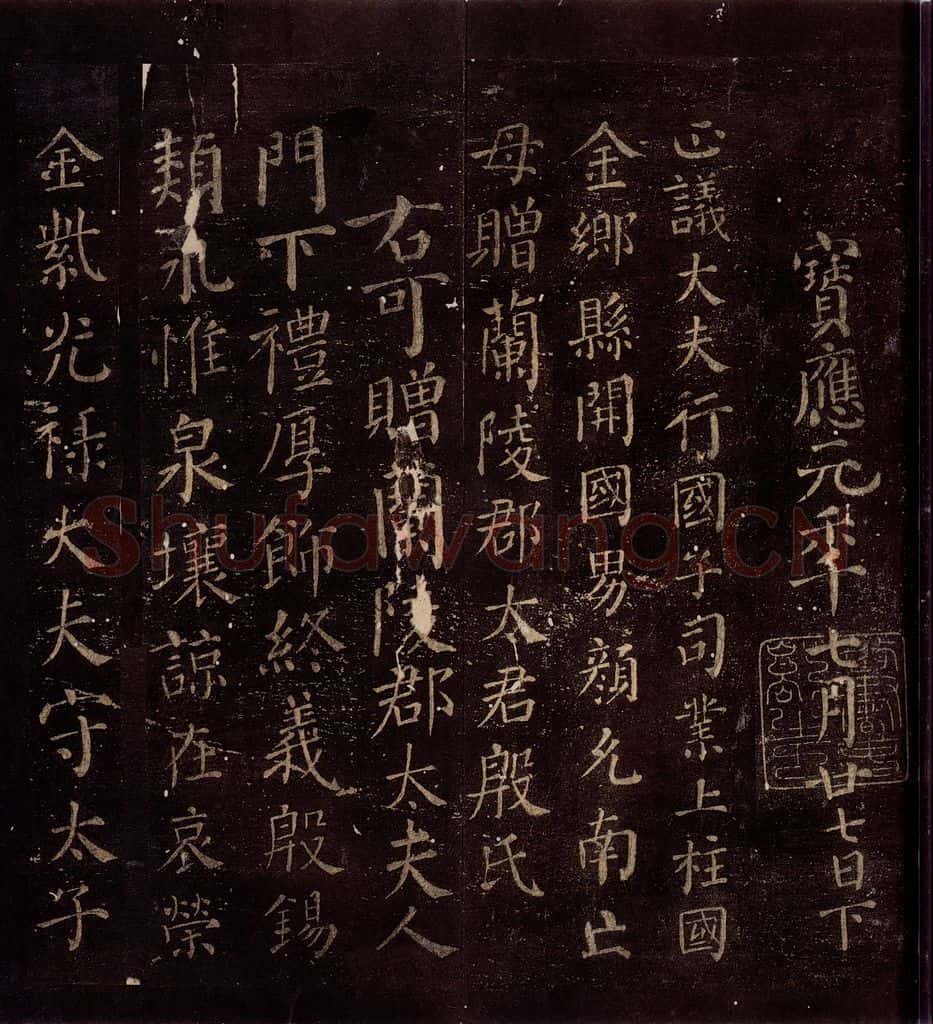 寶應元年七月廿七日下
正議大夫行國子司業上柱國
金鄉縣開國男顏允南亡
母贈蘭陵郡太君殷氏
右可贈蘭陵郡太夫人
門下禮厚飾終義殷錫
類永惟泉壤諒在哀榮
金紫光祿大夫守太子
Shufawang.CN